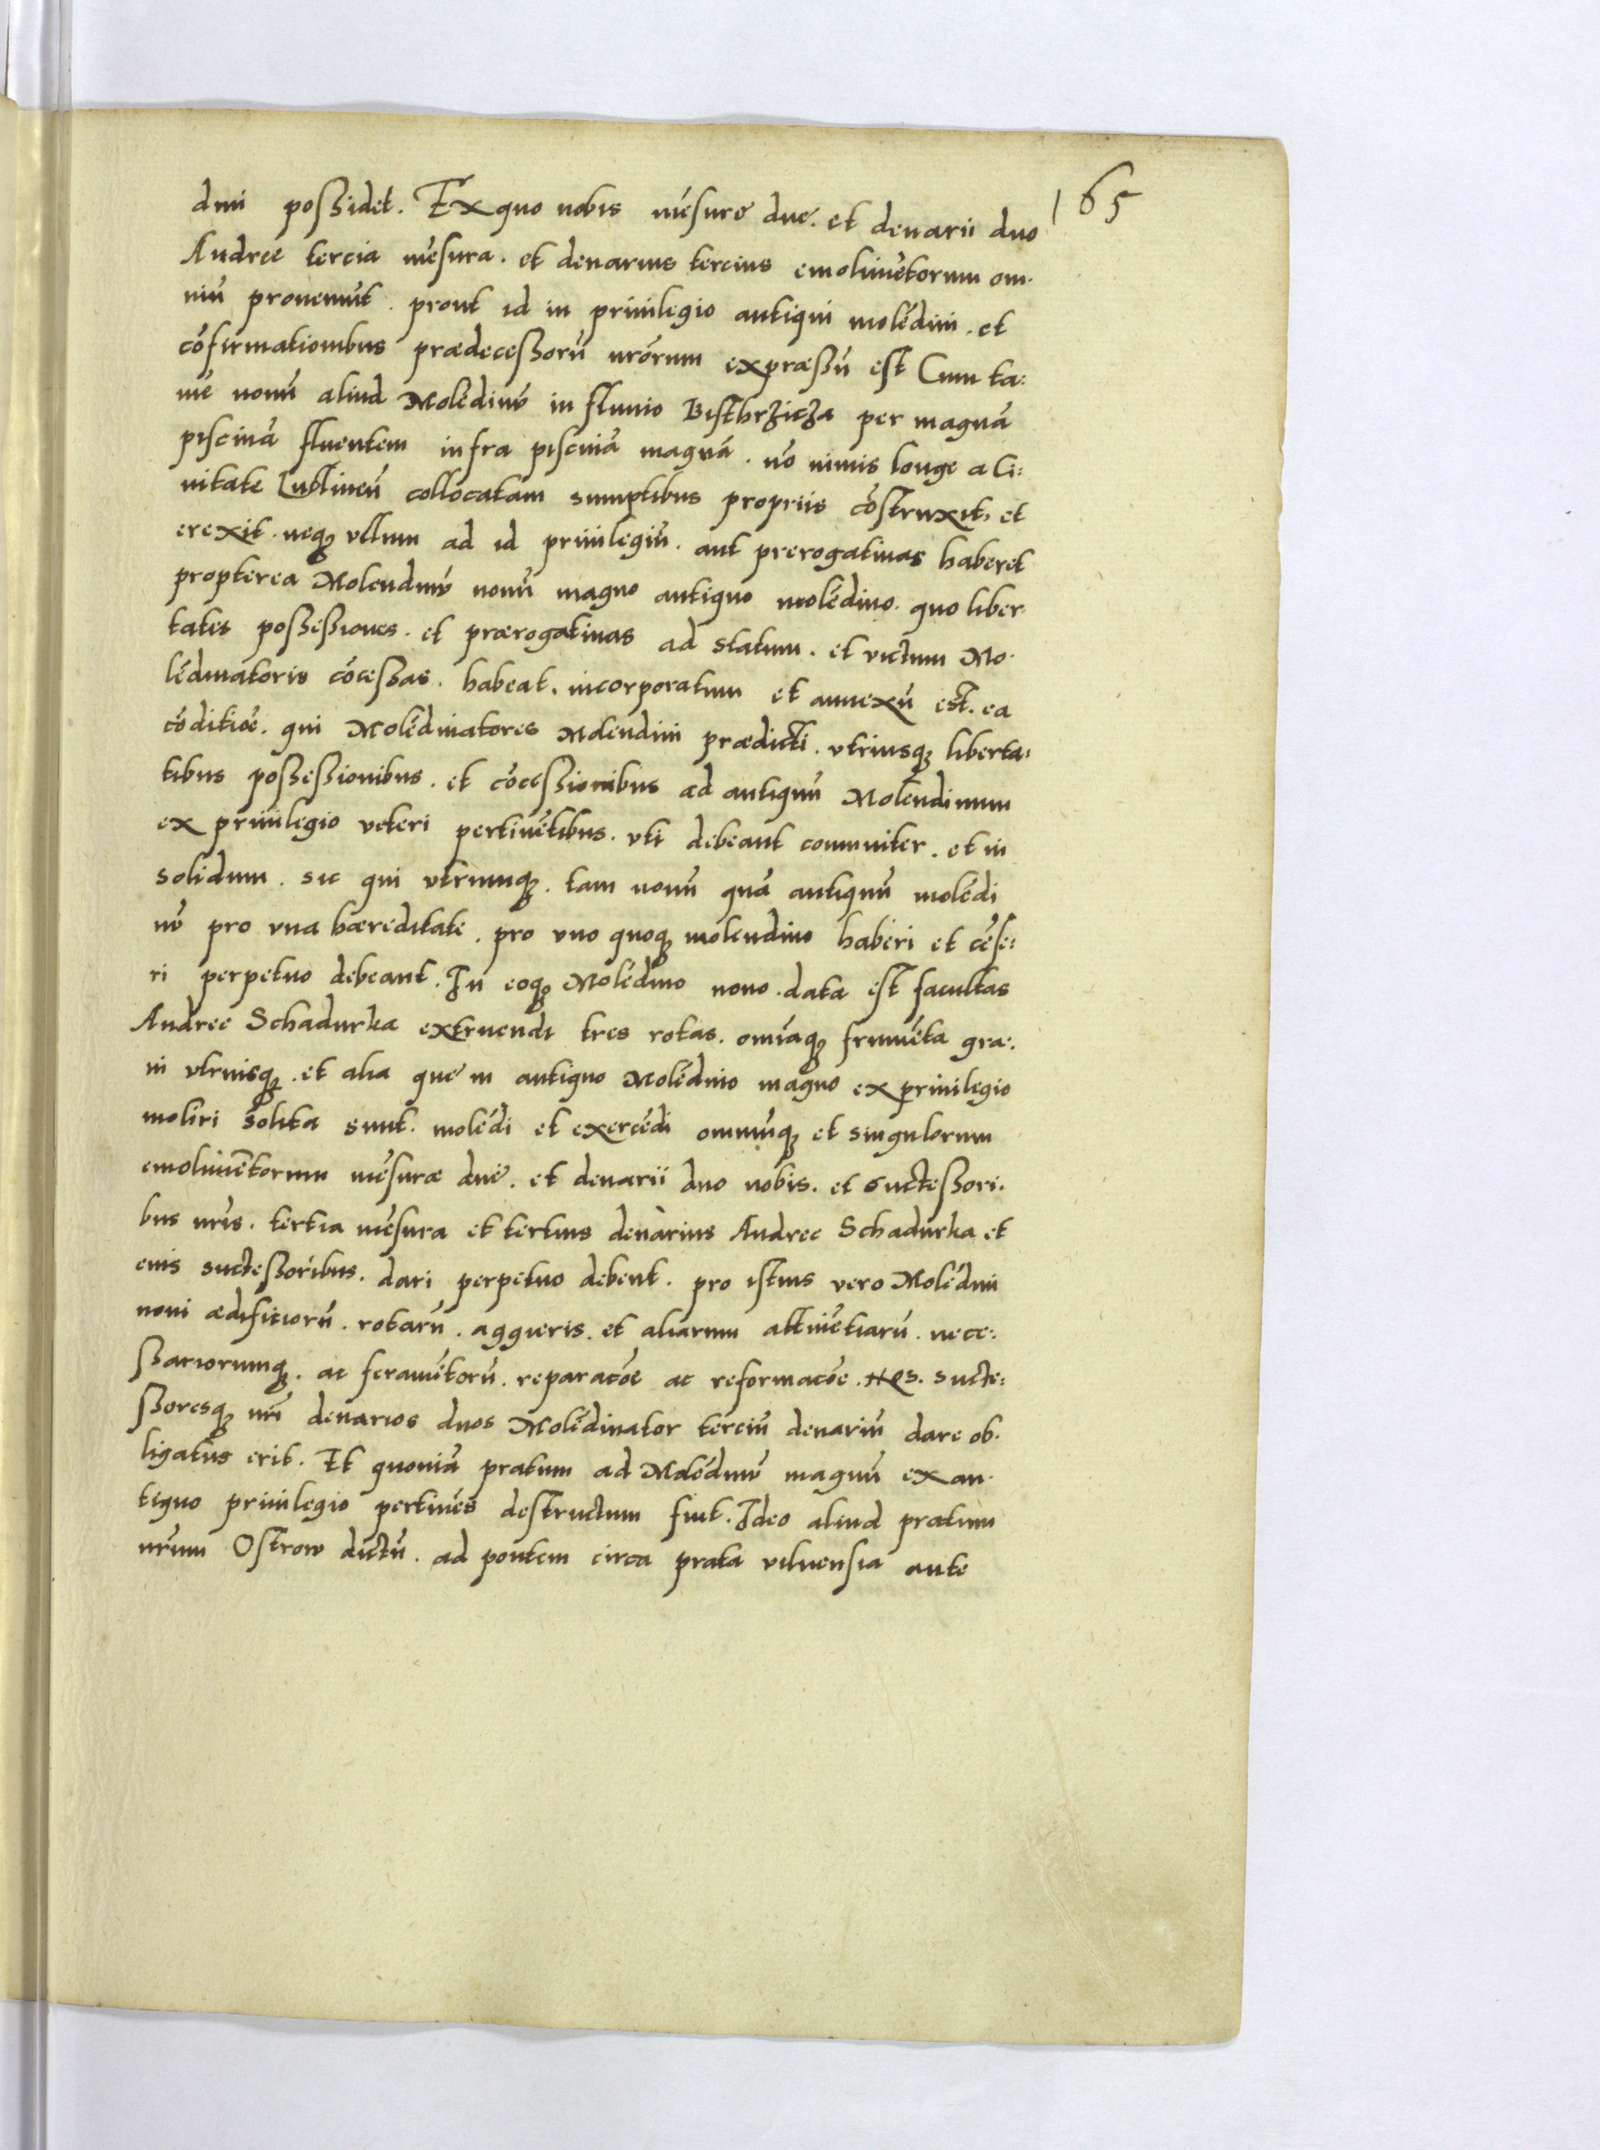 165
dini possidet. Ex quo nobis mēsure due. et denarii duo
Andree tercia mēsura. et denarius tercius emolimētorum om-
niū proveniūt. prout id in privilegio antiqui molēdini. et
cōfirmationibus prædecessorū nr̄orum expræssū est Cum ta:
mē novū aliud Molēdinū in fluvio Bisthrzicza per magnā
piscinā fluentem infra piscinā magnā. nō nimis longe a Ci:
vitate Lublineñ collocatam sumptibus propriis cōstruxit, et
erexit. neq₃ ullum ad id privilegiū. aut prerogativas haberet
propterea Molendinū novū magno antiquo molēdino. quo liber
tates possessiones. et prærogativas ad statum. et victum Mo-
lēdinatoris cōcessas. habeat. incorporatum et annexū est. ea
cōditiōe. qui Molēdinatores Molendini prædicti. utriusq₃ liberta:
tibus possessionibus. et cōcessionibus ad antiquū Molendinum
ex privilegio veteri pertinētibus. uti debeant communiter. et in
solidum. sic qui utrumq₃. tam novū quā antiquū molēdi
nū pro una hæreditate. pro uno quoq₃ molendino haberi et cēse:
ri perpetuo debeant. In eoq₃ Molēdino novo. data est facultas
Andree Schadurka extruendi tres rotas. omīaq₃ frumēta gra-
ni utriusq₃. et alia que in antiquo Molēdino magno ex privilegio
moliri solita sunt. molēdi et exercēdi omniūq₃ et singulorum
emolimētorum mēsuræ due. et denarii duo nobis. et successori-
bus nr̄is. tertia mēsura et tertius denarius Andree Schadurka et
eius successoribus. dari perpetuo debent. pro istius vero Molēdini
novi ædificiorū. rotarū. aggieris. et aliarum attinētiarū. nece:
ssariorumq₃. ac feramētorū. reparacōe ac reformacōe. nos. succe:
ssoresq₃ nr̄i denarios duos Molēdinator terciū denariū dare ob-
ligatus erit. Et quoniā pratum ad Molēdinū magnū ex an-
tiquo privilegio pertinēs destructum fuit. Ideo aliud pratum
nr̄um Ostrow dictū. ad pontem circa prata vilnensia ante